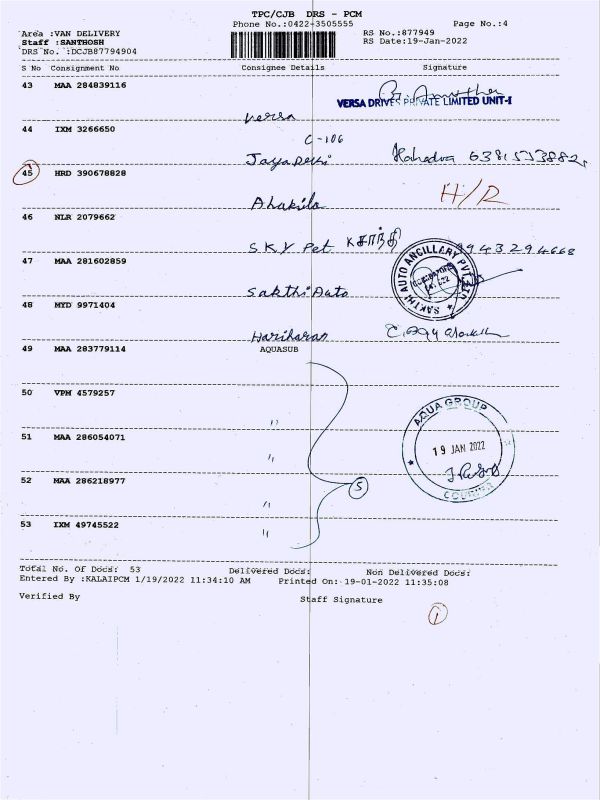 TPC/CJB DRS - PCM
Phone No.:0422-3505555 Page No.:4
Area :VAN DELIVERY RS No.:877949
Staff :SANTHOSH RS Date:19-Jan-2022
DRS No. :DCJB87794904
S No Consignment No Consignee Details Signature
43 MAA 284839116
VERSA DRIVES PRIVATE LIMITED UNIT-I
Versa
44 IXM 3266650
C-106
Jaya Delhi
45 HRD 390678828
H/R
Ahakila
46 NLR 2079662
SKY Pet சாந்தி 9943294668
47 MAA 281602859
SAKTHI AUTO ANCILLARY PVT LTD
Sakthi Auto
48 MYD 9971404
Hariharan
49 MAA 283779114 AQUASUB
50 VPM 4579257
"
51 MAA 286054071
"
52 MAA 286218977
"
53 IXM 49745522
"
5
AQUA GROUP
19 JAN 2022
COURIER
Total No. Of Docs: 53 Delivered Docs: Non Delivered Docs:
Entered By :KALAIPCM 1/19/2022 11:34:10 AM Printed On: 19-01-2022 11:35:08
Verified By Staff Signature
1